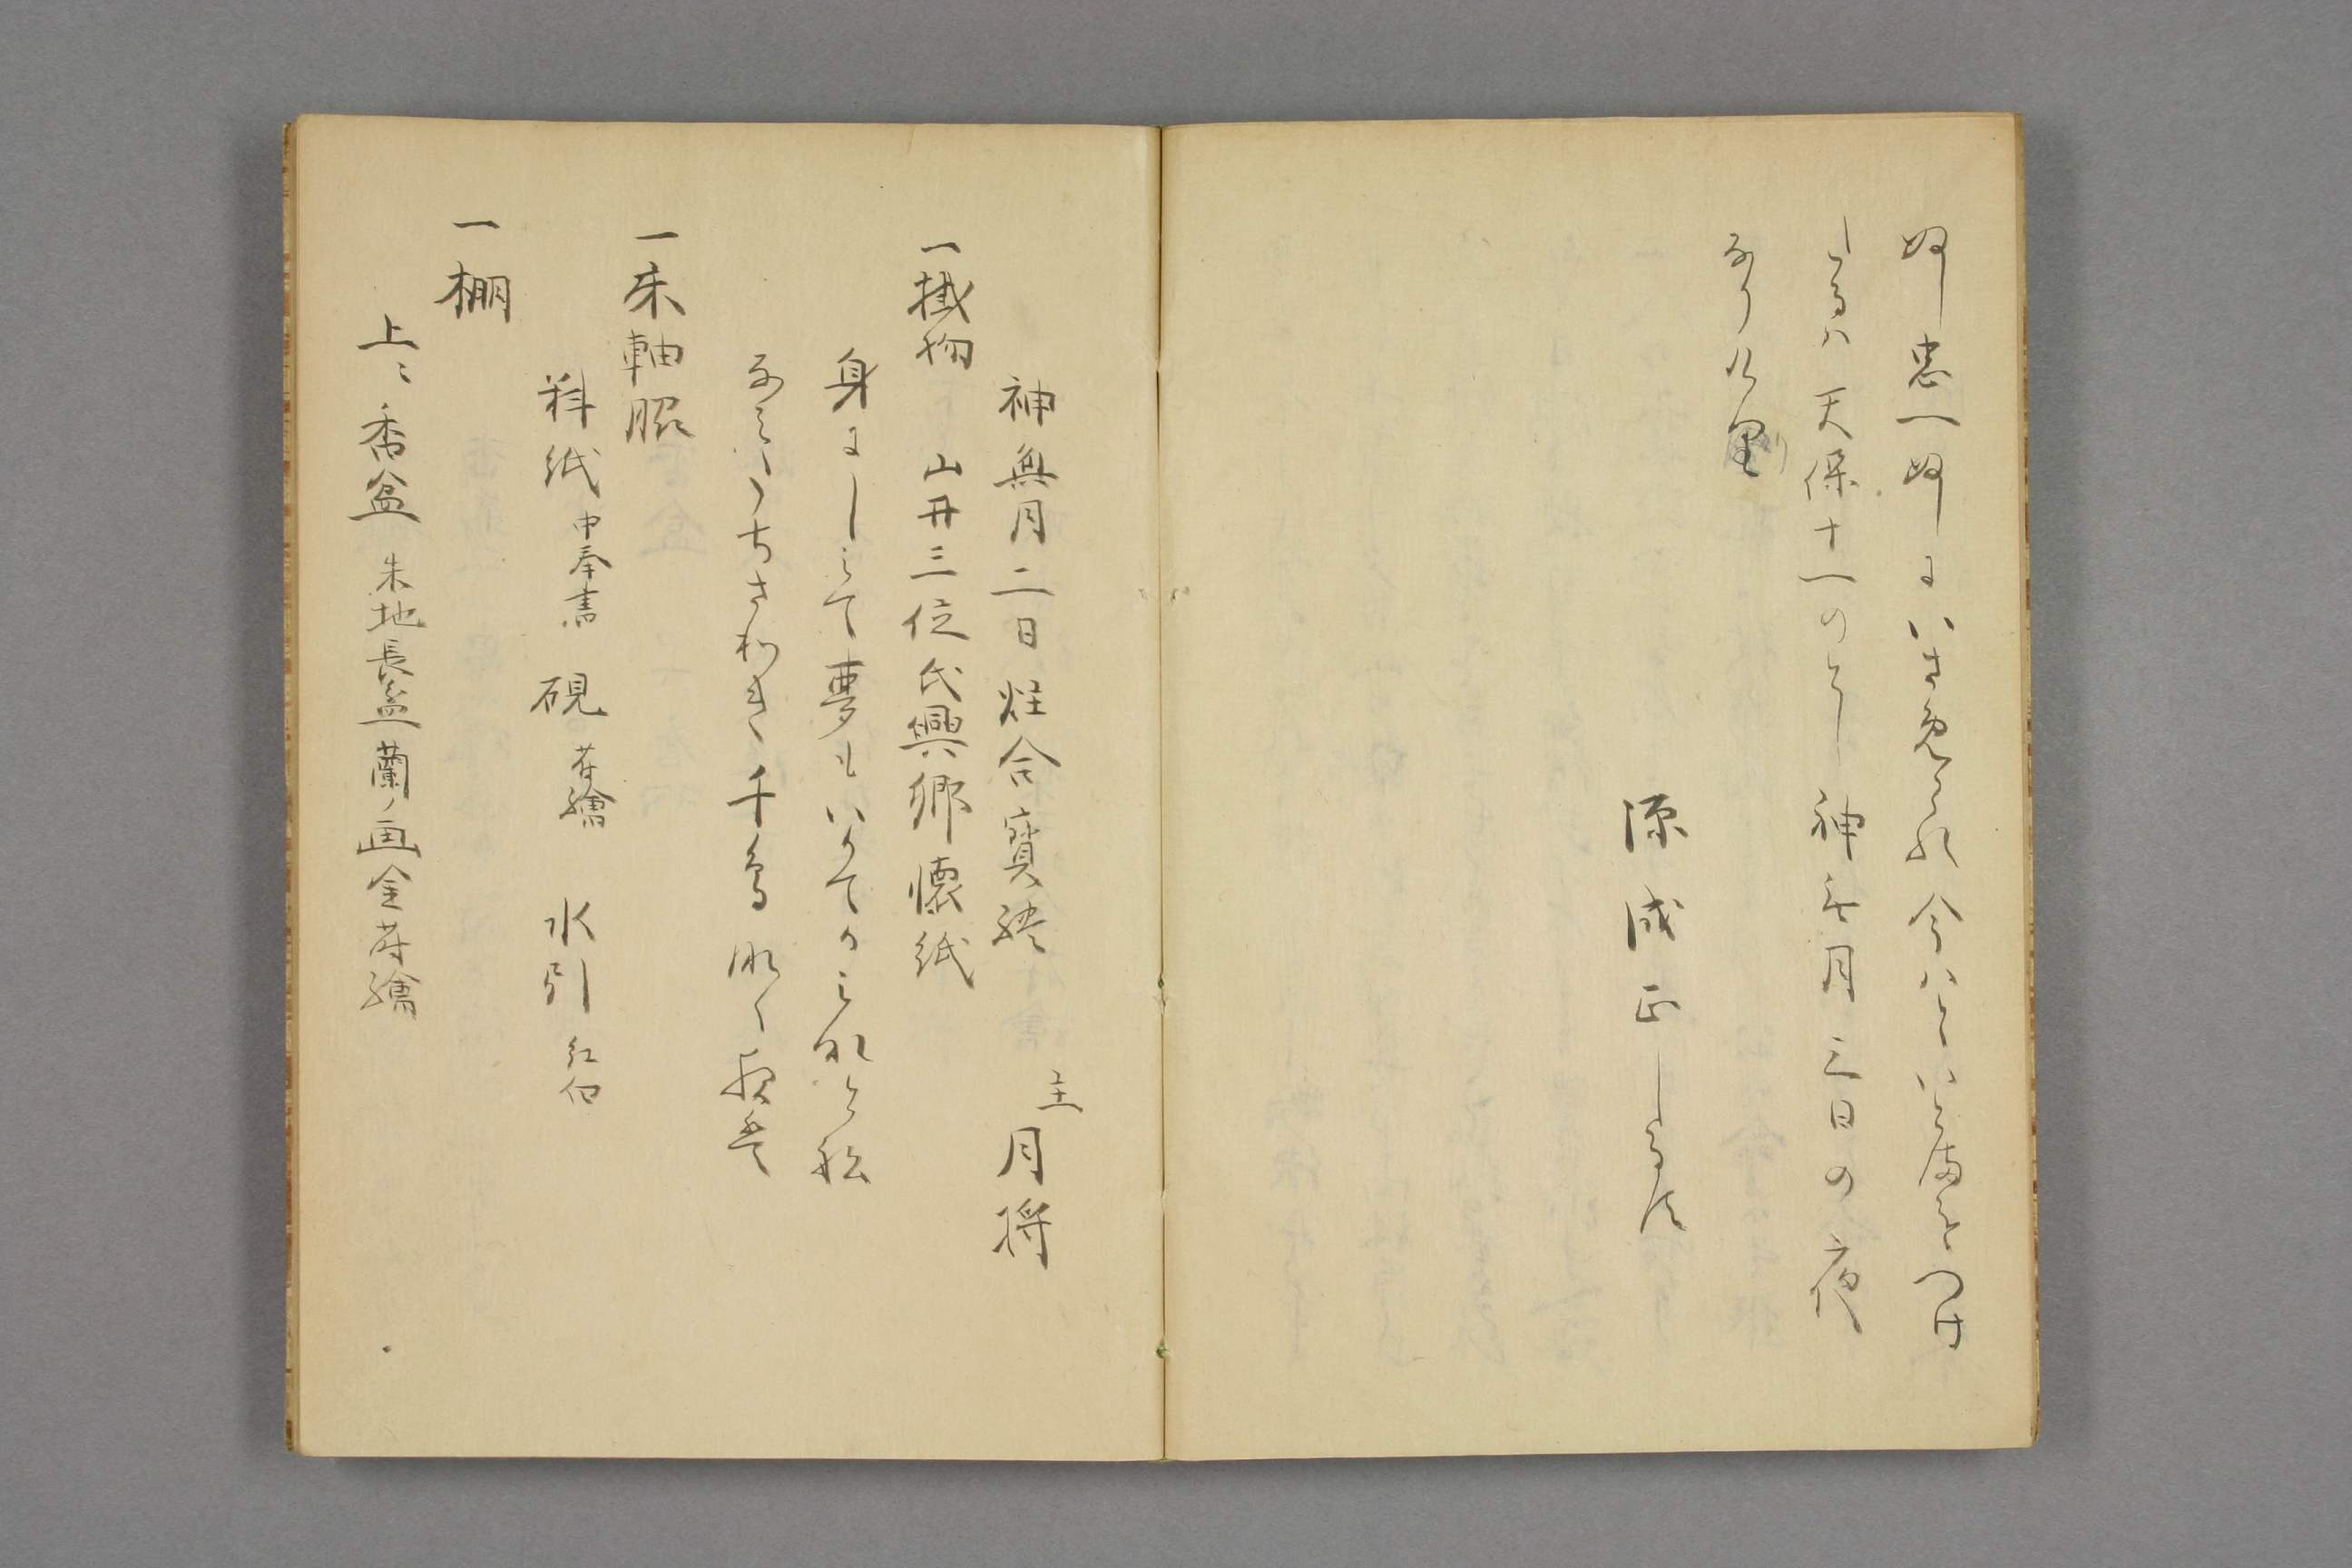 ぬし忠一ぬしにいさめられ今はといとまをつけ
しるは天保十一のとし神無月三日の夜
なりけり
源成正しるす
神無月二日炷合寶
主 月将
一掛物 山井三位氏興郷懐紙
身にしみて夢もいかてかみなと船
なみのうちさわき千鳥啼く夜は
一床軸脇
料紙 中奉書 硯 蒔繪 水引 紅白
一棚
上ニ香盆 朱地長盆蘭ノ画金蒔繪